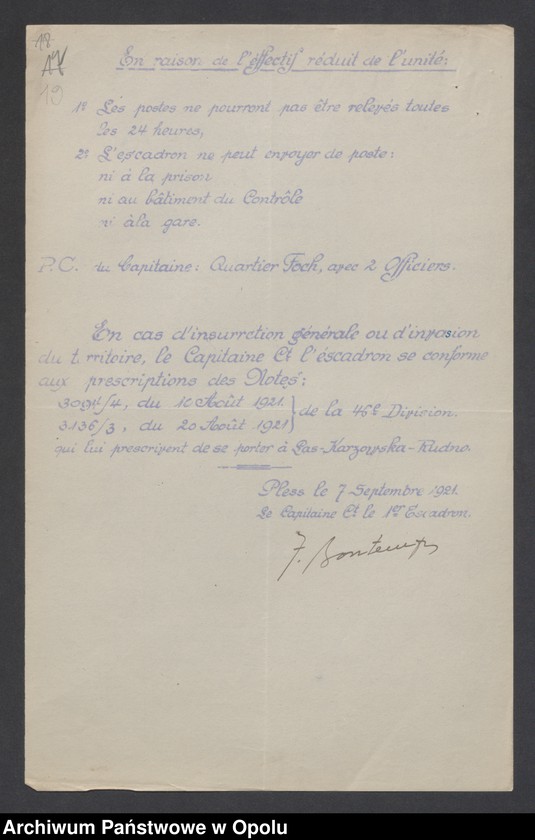 18
17
19
En raison de l'éffectif réduit de l'unité:
1º Les postes ne pourront pas être relevés toutes
les 24 heures,
2º L'escadron ne peut envoyer de poste:
ni à la prison
ni au bâtiment du Contrôle
ni àla gare.
P.C. du Capitaine: Quartier Foch, avec 2 Officiers.
En cas d'insurrction générale ou d'invasion
du t.rritoire, le Capitaine Ct l'éscadron se conforme
aux prescriptions des Notes:
/4, du 10 Août 1921.
3.136/3, du 20 Août 1921
de la 46e Division.
qui lui prescrivent de se porter à Las-Karzowska-Rudno.
Pless le 7 Septembre 1921.
Le Capitaine Ct le 1er Escadron.
F. Bontemps
Archiwum Państwowe w Opolu